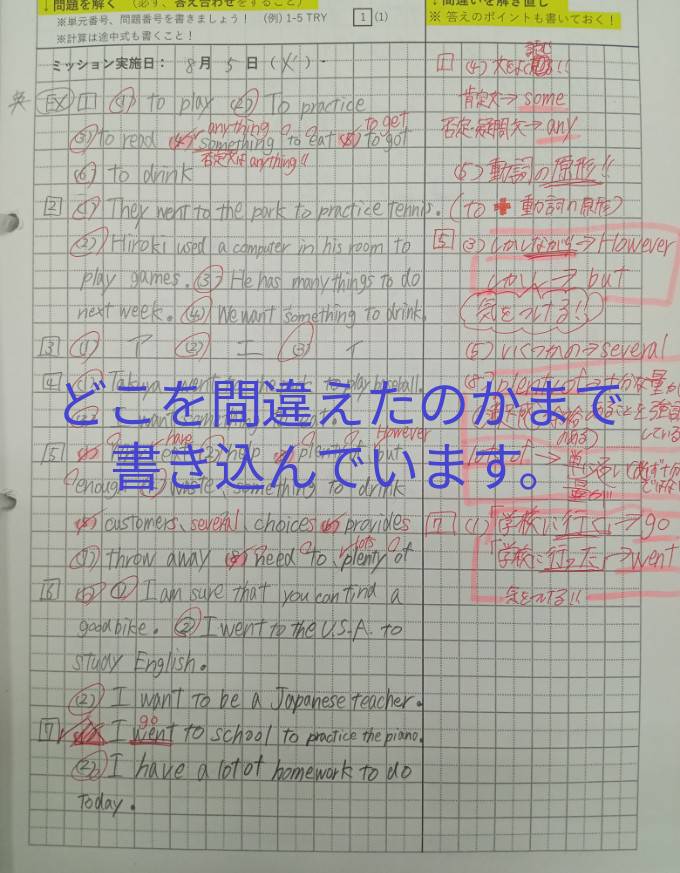 ↓問題を解く（必ず、答え合わせをすること）
※単元番号、問題番号を書きましょう！ （例）1-5 TRY 1 (1)
※計算は途中式も書くこと！
ミッション実施日： 8月 5日（
英 EX 1 (1) to play (2) To practice
anything to get
(3) to read (4) something to eat (5) to got
否定文は anything!!
(6) to drink
2 (1) They went to the park to practice tennis.
(2) Hiroki used a computer in his room to
play games. (3) He has many things to do
next week. (4) We want something to drink.
3 (1) ア (2) エ (3) イ
4 (1) Takuya went to play baseball.
have However
5 help but
enough waste something to drink
customers、several、choices provides
lots
(7) throw away (8) need to plenty of
6 (1) ① I am sure that you can find a
good bike. ② I went to the U.S.A. to
study English.
(2) I want to be a Japanese teacher.
go
7 I went to school to practice the piano.
(2) I have a lot of homework to do
today.
↓間違いを解き直し
※ 答えのポイントも書いておく！
1 (4) 文をよく
肯定文→ some
否定・疑問文→ any
(5) 動詞の原形!!
(to + 動詞の原形)
5 (3) しかしながら→ However
しかし → but
気をつける!!
(5) いくつかの→ several
7 (1)「学校に行く」→ go
「学校に行った」→ went
気をつける!!
どこを間違えたのかまで
書き込んでいます。